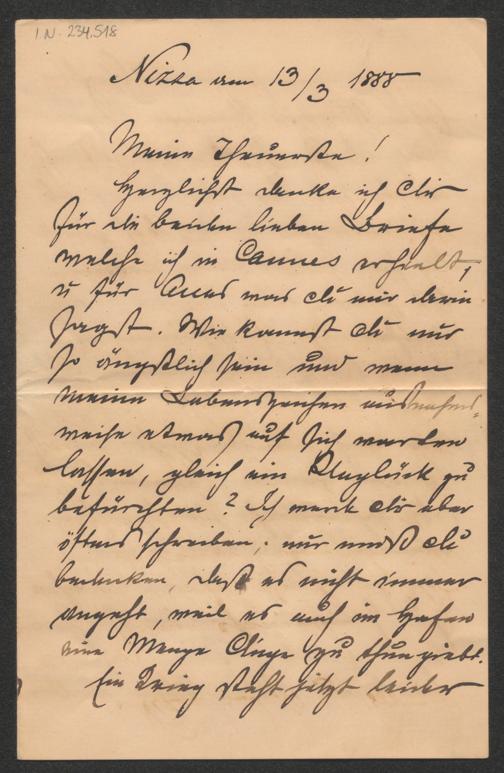 I.N. 234.518
Nizza am 13/3 1888
Meine Theuerste!
Herzlichst danke ich dir
für die beiden lieben Briefe
welche ich in Cannes erhielt,
u für Alles was du mir darin
sagst. Wie kannst du nur
so ängstlich sein und wenn
meine Lebenszeichen ausnahms-
weise etwas auf sich warten
lassen, gleich ein Unglück zu
befürchten? Ich werde dir aber
öfters schreiben, nur mußt du
bedenken, daß es nicht immer
angeht, weil es auch im Hafen
eine Menge Dinge zu thun giebt.
Ein Krieg steht jetzt leider